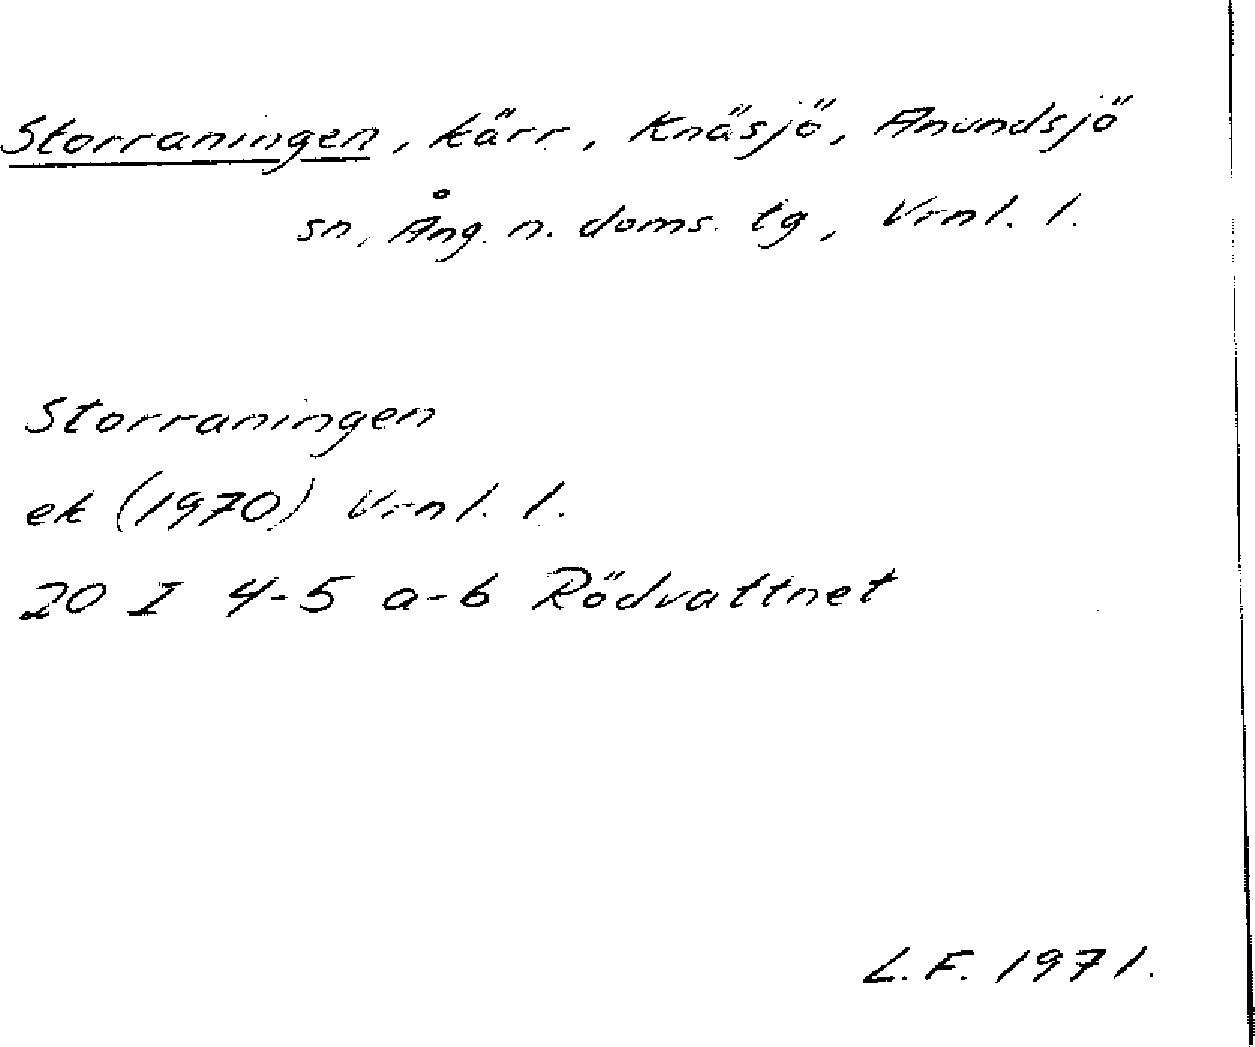 Storraningen, kärr, Knäsjö, Anundsjö
sn, Ång. n. doms. lg, Vrnl. l.
Storraningen
ek (1970) Vrnl. l.
20 I 4-5 a-b Rödvattnet
L.F. 1971.